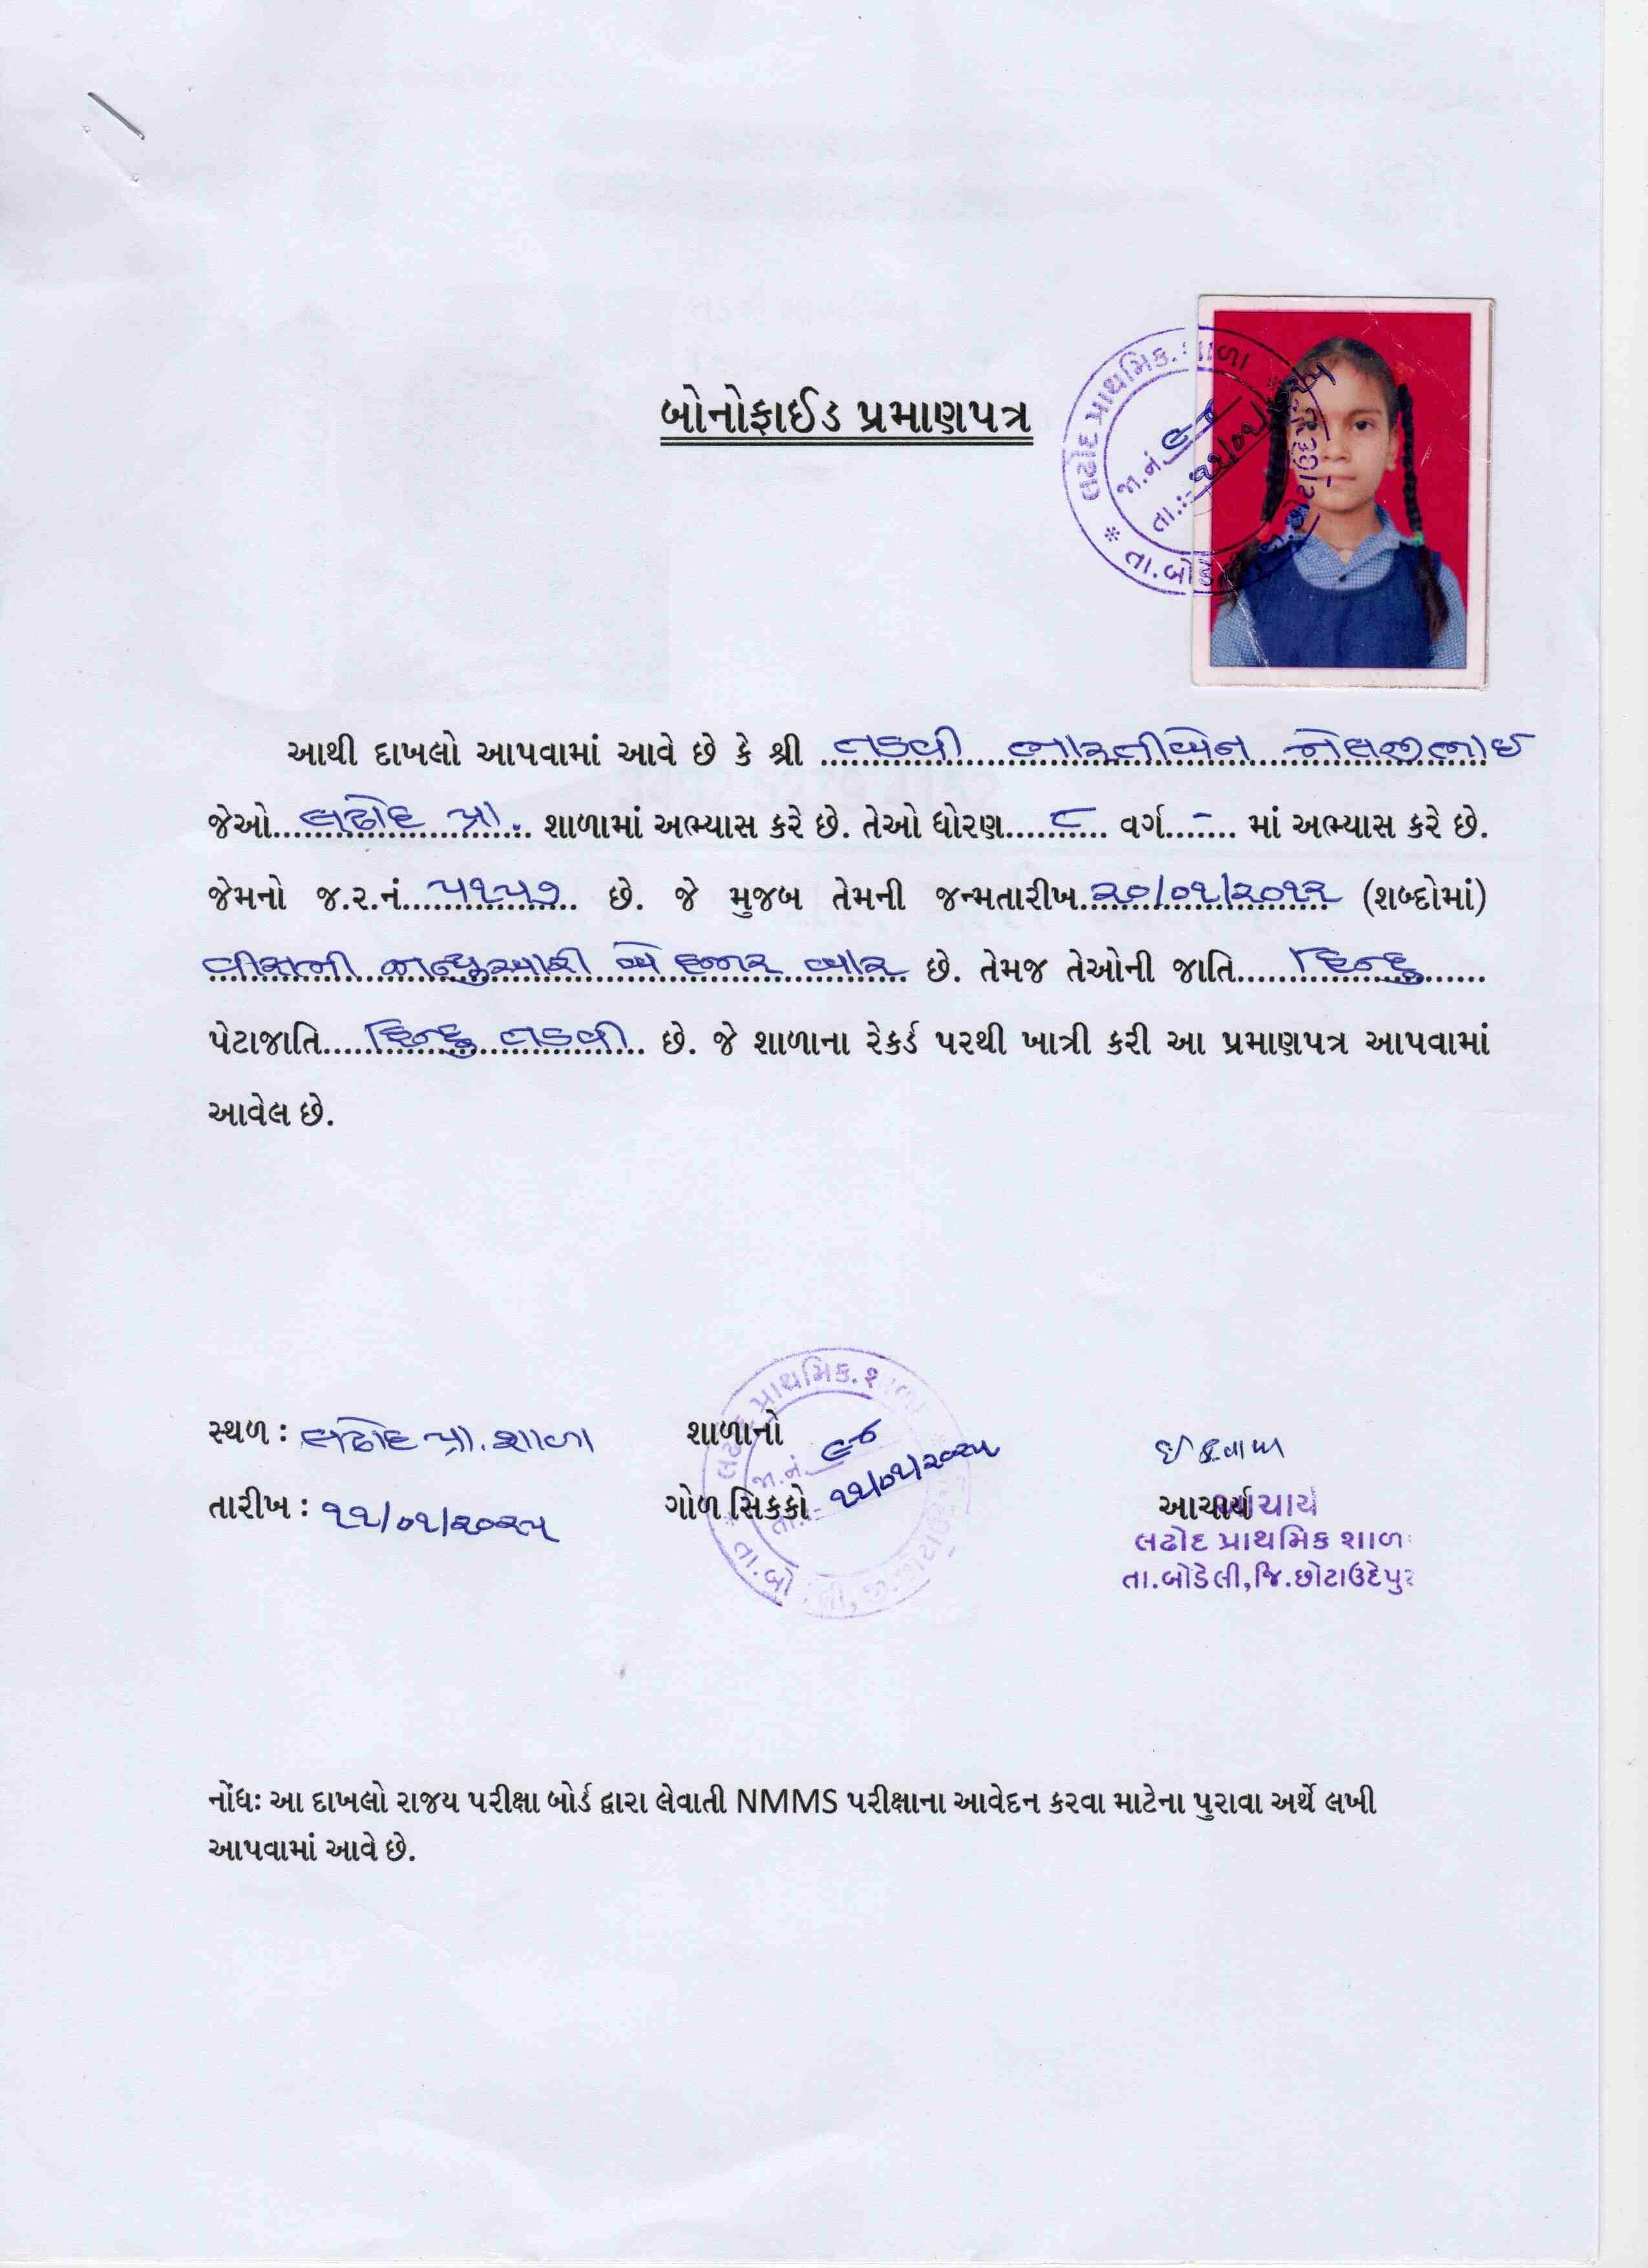 બોનોફાઈડ પ્રમાણપત્ર
લઢોદ પ્રાથમિક.શાળા
જા.નં. ૯૮
તા.:- ૨૨/૦૧/૨૦૨૫
આથી દાખલો આપવામાં આવે છે કે શ્રી તડવી ભારતીબેન
જેઓ લઢોદ પ્રા. શાળામાં અભ્યાસ કરે છે. તેઓ ધોરણ ૮ વર્ગ - માં અભ્યાસ કરે છે.
જેમનો જ.ર.નં. ૫૧૫૭ છે. જે મુજબ તેમની જન્મતારીખ ૨૦/૦૧/૨૦૧૨ (શબ્દોમાં)
વીસમી જાન્યુઆરી બે હજાર બાર છે. તેમજ તેઓની જાતિ હિન્દુ
પેટાજાતિ હિન્દુ તડવી છે. જે શાળાના રેકર્ડ પરથી ખાત્રી કરી આ પ્રમાણપત્ર આપવામાં
આવેલ છે.
સ્થળ : લઢોદ પ્રા. શાળા
શાળાનો
તારીખ : ૨૨/૦૧/૨૦૨૫
ગોળ સિકકો
લઢોદ પ્રાથમિક.શાળા
જા.નં. ૯૮
તા.:- ૨૨/૦૧/૨૦૨૫
આચાર્ય
આચાર્ય
લઢોદ પ્રાથમિક શાળા
તા.બોડેલી,જિ.છોટાઉદેપુર
નોંધઃ આ દાખલો રાજય પરીક્ષા બોર્ડ દ્વારા લેવાતી NMMS પરીક્ષાના આવેદન કરવા માટેના પુરાવા અર્થે લખી
આપવામાં આવે છે.